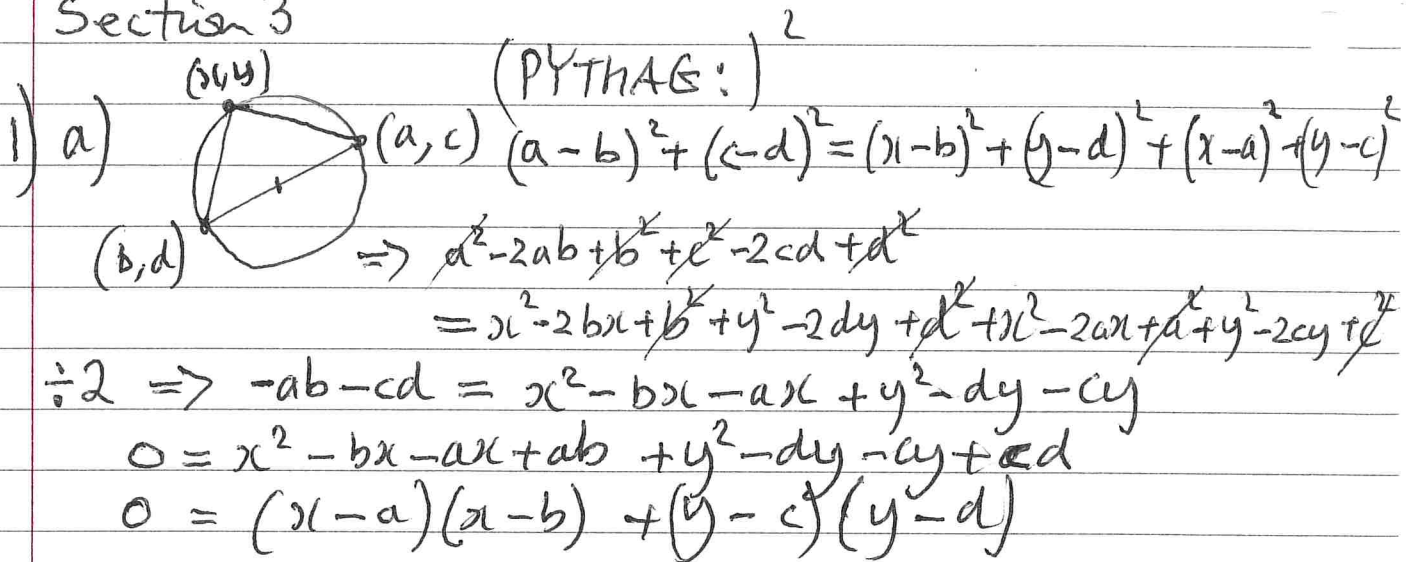 Section 3
(PYThAG:)²
1) a) (x,y) (a,c) (b,d)
(a-b)² + (c-d)² = (x-b)² + (y-d)² + (x-a)² + (y-c)²
=> a² - 2ab + b² + c² - 2cd + d²
= x² - 2bx + b² + y² - 2dy + d² + x² - 2ax + a² + y² - 2cy + c²
÷2 => -ab - cd = x² - bx - ax + y² - dy - cy
0 = x² - bx - ax + ab + y² - dy - cy + cd
0 = (x-a)(x-b) + (y-c)(y-d)